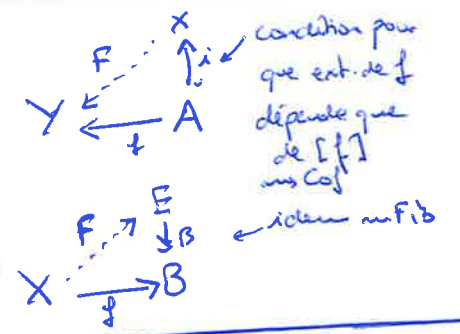 X
F
i
condition pour
que ext. de f
Y
f
A
dépende que
de [f]
⇝ Cof
E
F
B
idem ⇝ Fib
X
f
B